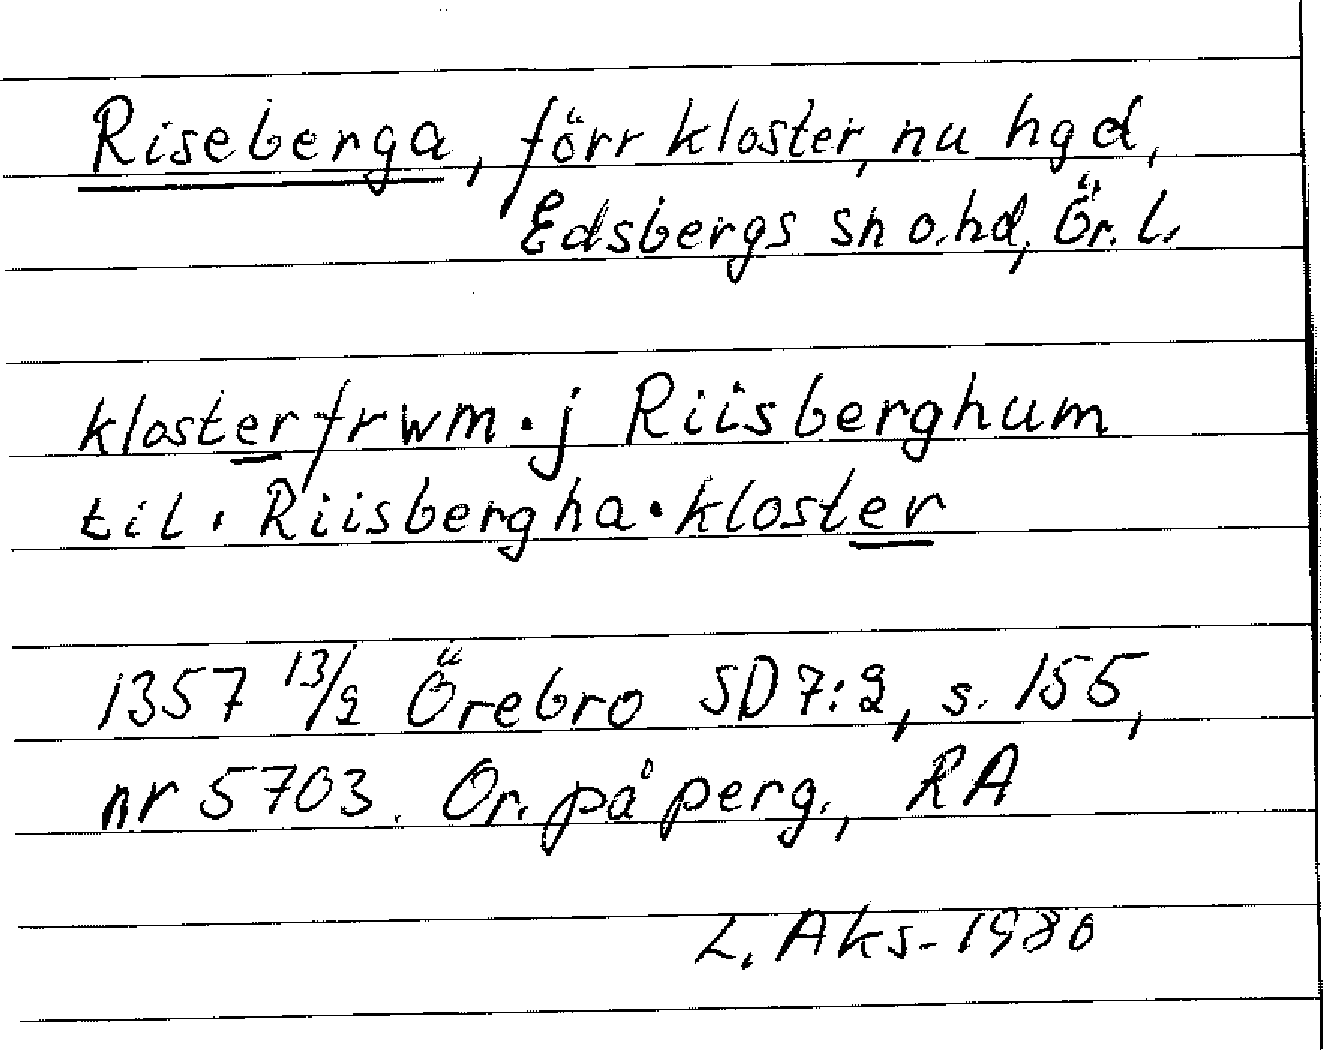 Riseberga, förr kloster, nu hgd,
Edsbergs sn o. hd, Ör. l.
klosterfrwm · j Riisberghum
til · Riisbergha · kloster
1357 13/2 Örebro SD 7:2, s. 155,
nr 5703. Or. på perg., RA
L. Aks- 1980